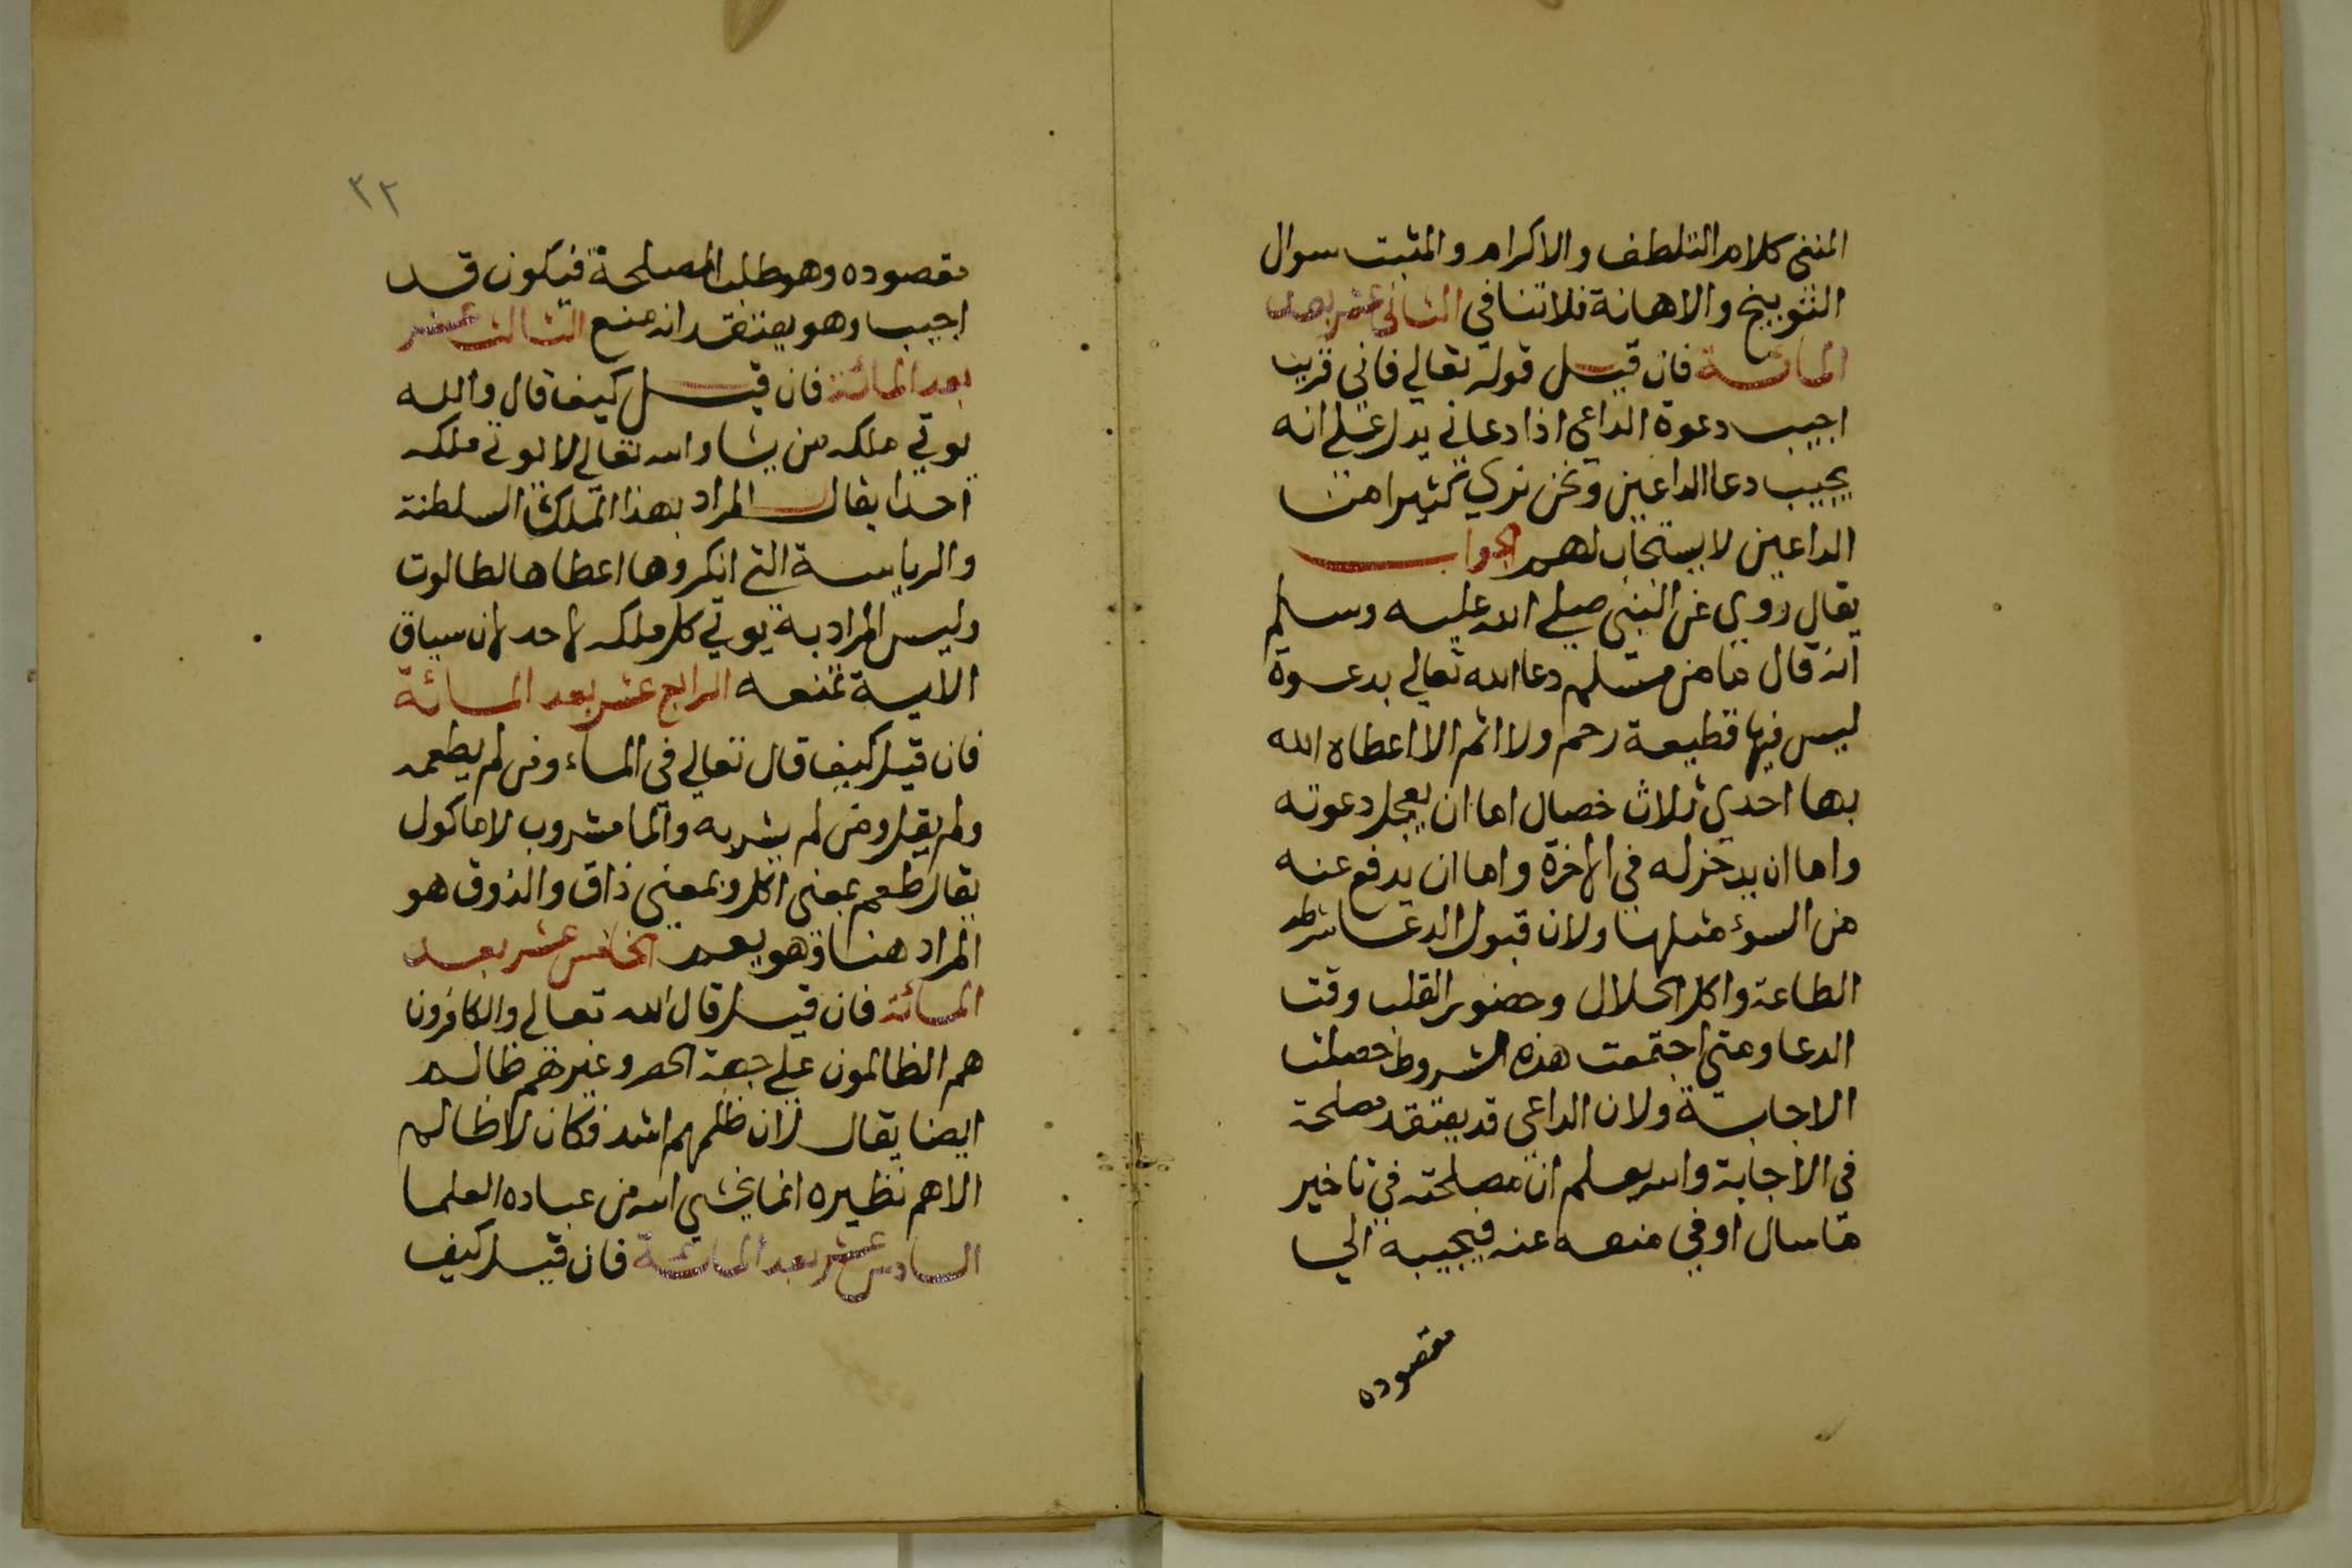 المنفى كلام التلطف والاكرام والمثبت سوال
التوبيخ والاهانة فلا تنافي الثاني عشر بعد
المائة فان قيل قوله تعالي فاني قريب
اجيب دعوة الداعي اذا دعاني يدل علي انه
يجيب دعا الداعين ونحن نري كثيرا من
الداعين لا يستجاب لهم الجواب
يقال روي عن النبي صلي الله عليه وسلم
انه قال ما من مسلم دعا الله تعالي بدعوة
ليس فيها قطيعة رحم ولا اثم الا اعطاه الله
بها احدي ثلاث خصال اما ان يعجل دعوته
واما ان يدخر له في الاخرة واما ان يدفع عنه
من السوء مثلها ولان قبول الدعا شرطه
الطاعة واكل الحلال وحضور القلب وقت
الدعا ومتي اجتمعت هذه الشروط حصلت
الاجابة ولان الداعي قد يعتقد مصلحة
في الاجابة والله يعلم ان مصلحته في تاخير
ما سال او في منعه عنه فيجيبه الي
مقصوده
٣٢
مقصوده وهو طلب المصلحة فيكون قد
اجيب وهو يعتقد انه منع الثالث عشر
بعد المائة فان قيل كيف قال والله
يوتي ملكه من يشا والله تعالي لا يوتي ملكه
احدا يقال المراد بهذا الملك السلطنة
والرياسة التي انكروها اعطاها لطالوت
وليس المراد به يوتي كل ملكه لاحد لان سياق
الاية تمنعه الرابع عشر بعد المائة
فان قيل كيف قال تعالي في الماء ومن لم يطعمه
ولم يقل ومن لم يشربه والما مشروب لا ماكول
يقال طعم بمعني اكل وبمعني ذاق والذوق هو
المراد هنا وهو يعم الخامس عشر بعد
المائة فان قيل قال الله تعالي والكافرون
هم الظالمون علي جهة الحصر وغيرهم ظالم
ايضا يقال لان ظلمهم اشد فكان لا ظالم
الا هم نظيره انما يخشي الله من عباده العلما
السادس عشر بعد المائة فان قيل كيف